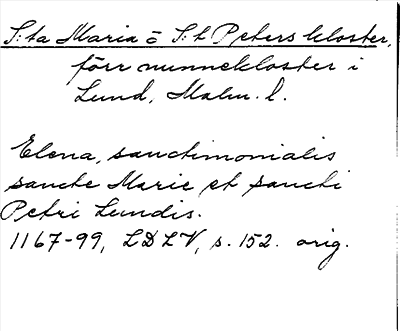 S:ta Maria o S:t Peters kloster,
förr nunnekloster i
Lund, Malm. l.
Elena, sanctimonialis
sancte Marie et sancti
Petri Lundis.
1167-99, LDLV, s. 152. orig.